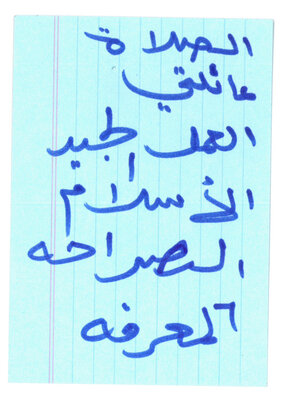 الصلاة
عائلتي
العمل الجيد
الأسلام
الصراحه
المعرفه